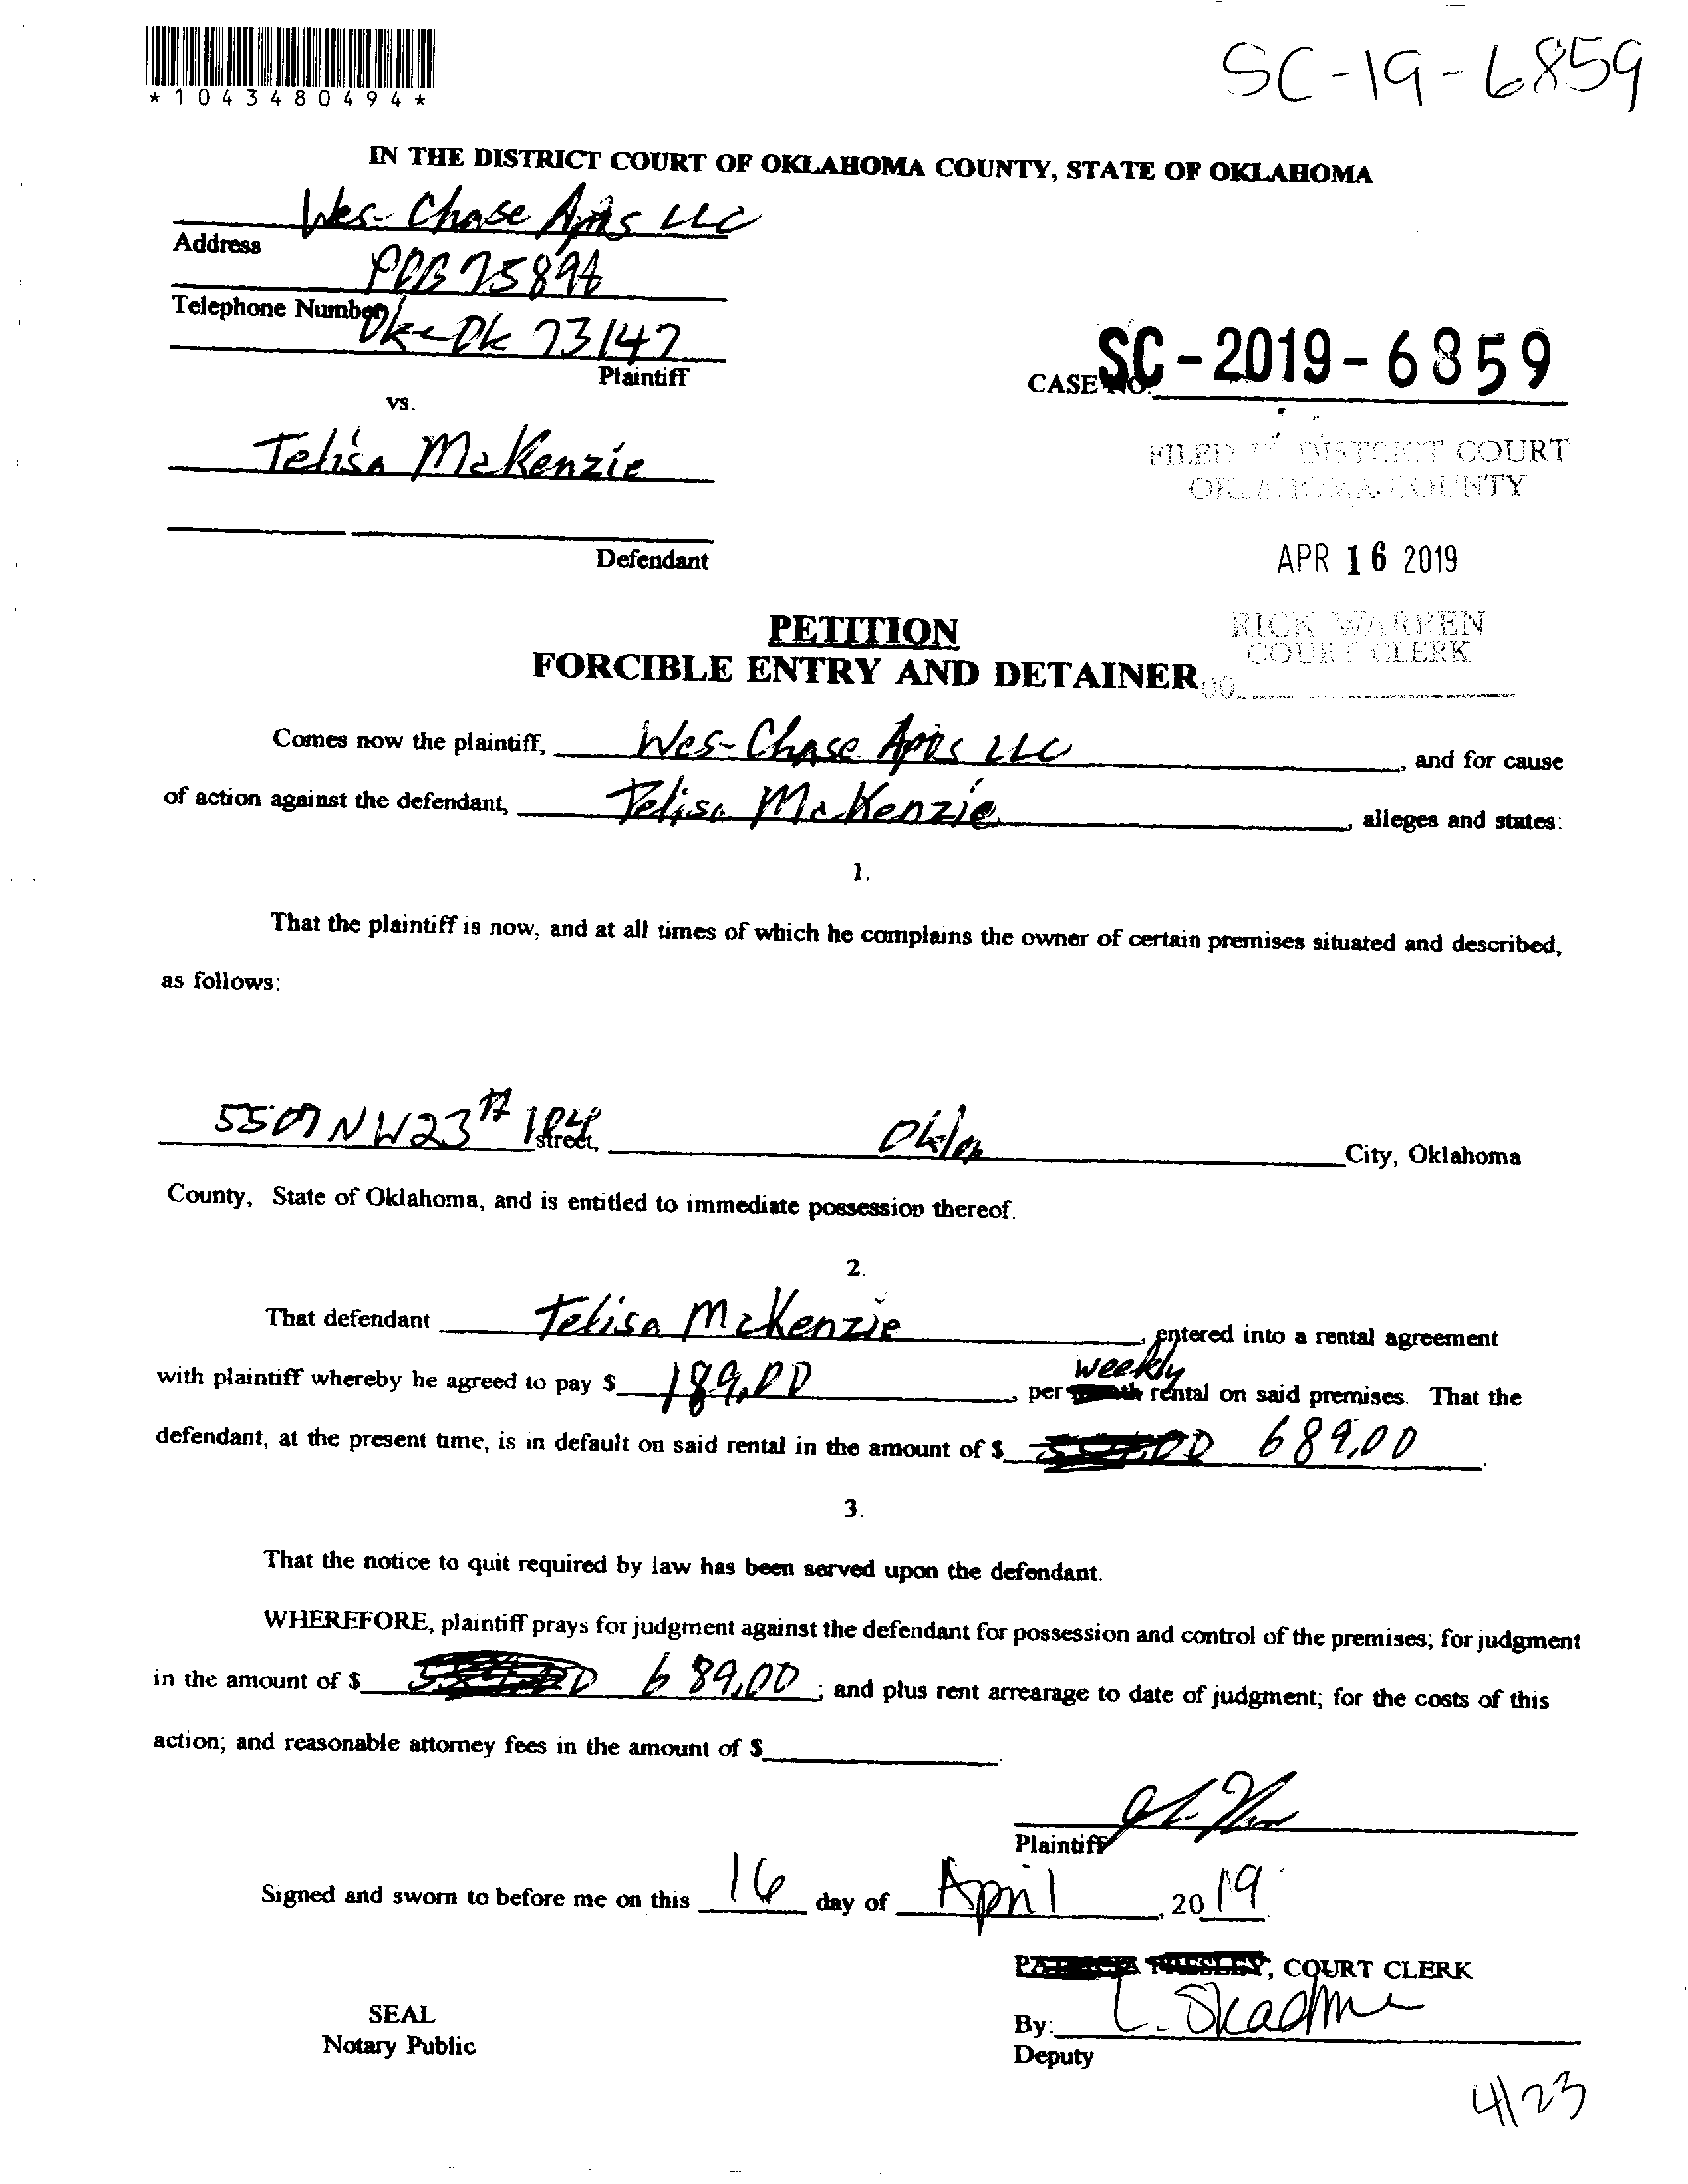 *1043480494*
SC-19-6859
IN THE DISTRICT COURT OF OKLAHOMA COUNTY, STATE OF OKLAHOMA
Wes-Chase Apts LLC
Address
POB 75894
Telephone Number
Okc Ok 73147
Plaintiff
CASE NO. SC-2019-6859
vs.
Telisa McKenzie
FILED IN DISTRICT COURT
OKLAHOMA COUNTY
Defendant
APR 16 2019
PETITION
RICK WARREN
COURT CLERK
FORCIBLE ENTRY AND DETAINER
Comes now the plaintiff, Wes-Chase Apts LLC, and for cause
of action against the defendant, Telisa McKenzie, alleges and states:
1.
That the plaintiff is now, and at all times of which he complains the owner of certain premises situated and described,
as follows:
5507 NW 23 # 184 street, Okla City, Oklahoma
County, State of Oklahoma, and is entitled to immediate possession thereof.
2.
That defendant Telisa McKenzie, entered into a rental agreement
weekly
with plaintiff whereby he agreed to pay $ 189.00, per rental on said premises. That the
defendant, at the present time, is in default on said rental in the amount of $ 689.00
3.
That the notice to quit required by law has been served upon the defendant.
WHEREFORE, plaintiff prays for judgment against the defendant for possession and control of the premises; for judgment
in the amount of $ 689.00; and plus rent arrearage to date of judgment; for the costs of this
action; and reasonable attorney fees in the amount of $
Plaintiff
Signed and sworn to before me on this 16 day of April, 2019
, COURT CLERK
SEAL
By:
Notary Public
Deputy
4/23